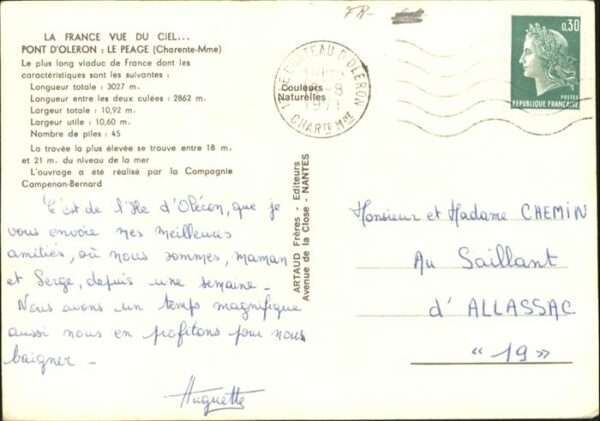 FR-
LA FRANCE VUE DU CIEL...
PONT D'OLERON : LE PEAGE (Charente-Mme)
Le plus long viaduc de France dont les
caractéristiques sont les suivantes :
Longueur totale : 3027 m.
Longueur entre les deux culées : 2862 m.
Largeur totale : 10,92 m.
Largeur utile : 10,60 m.
Nombre de piles : 45
La travée la plus élevée se trouve entre 18 m.
et 21 m. du niveau de la mer
L'ouvrage a été réalisé par la Compagnie
Campenon-Bernard
C'est de l'Ile d'Oléron, que je
vous envoie mes meilleures
amitiés, où nous sommes, maman
et Serge, depuis une semaine.
Nous avons un temps magnifique
aussi nous en profitons pour nous
baigner -
Huguette
Couleurs
Naturelles
ARTAUD Frères - Editeurs
Avenue de la Close - NANTES
LE CHATEAU D'OLERON
1971
CHARTE MME
0,30
POSTES
REPUBLIQUE FRANÇAISE
Monsieur et Madame CHEMIN
Au Saillant
d'ALLASSAC
"19"